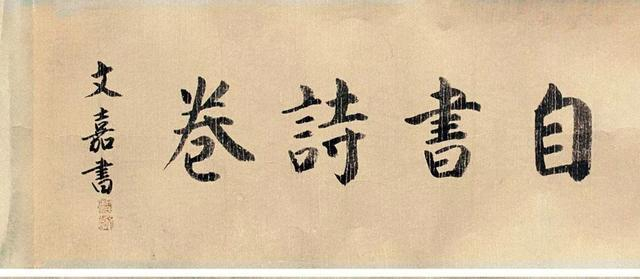 自書詩卷
文嘉書